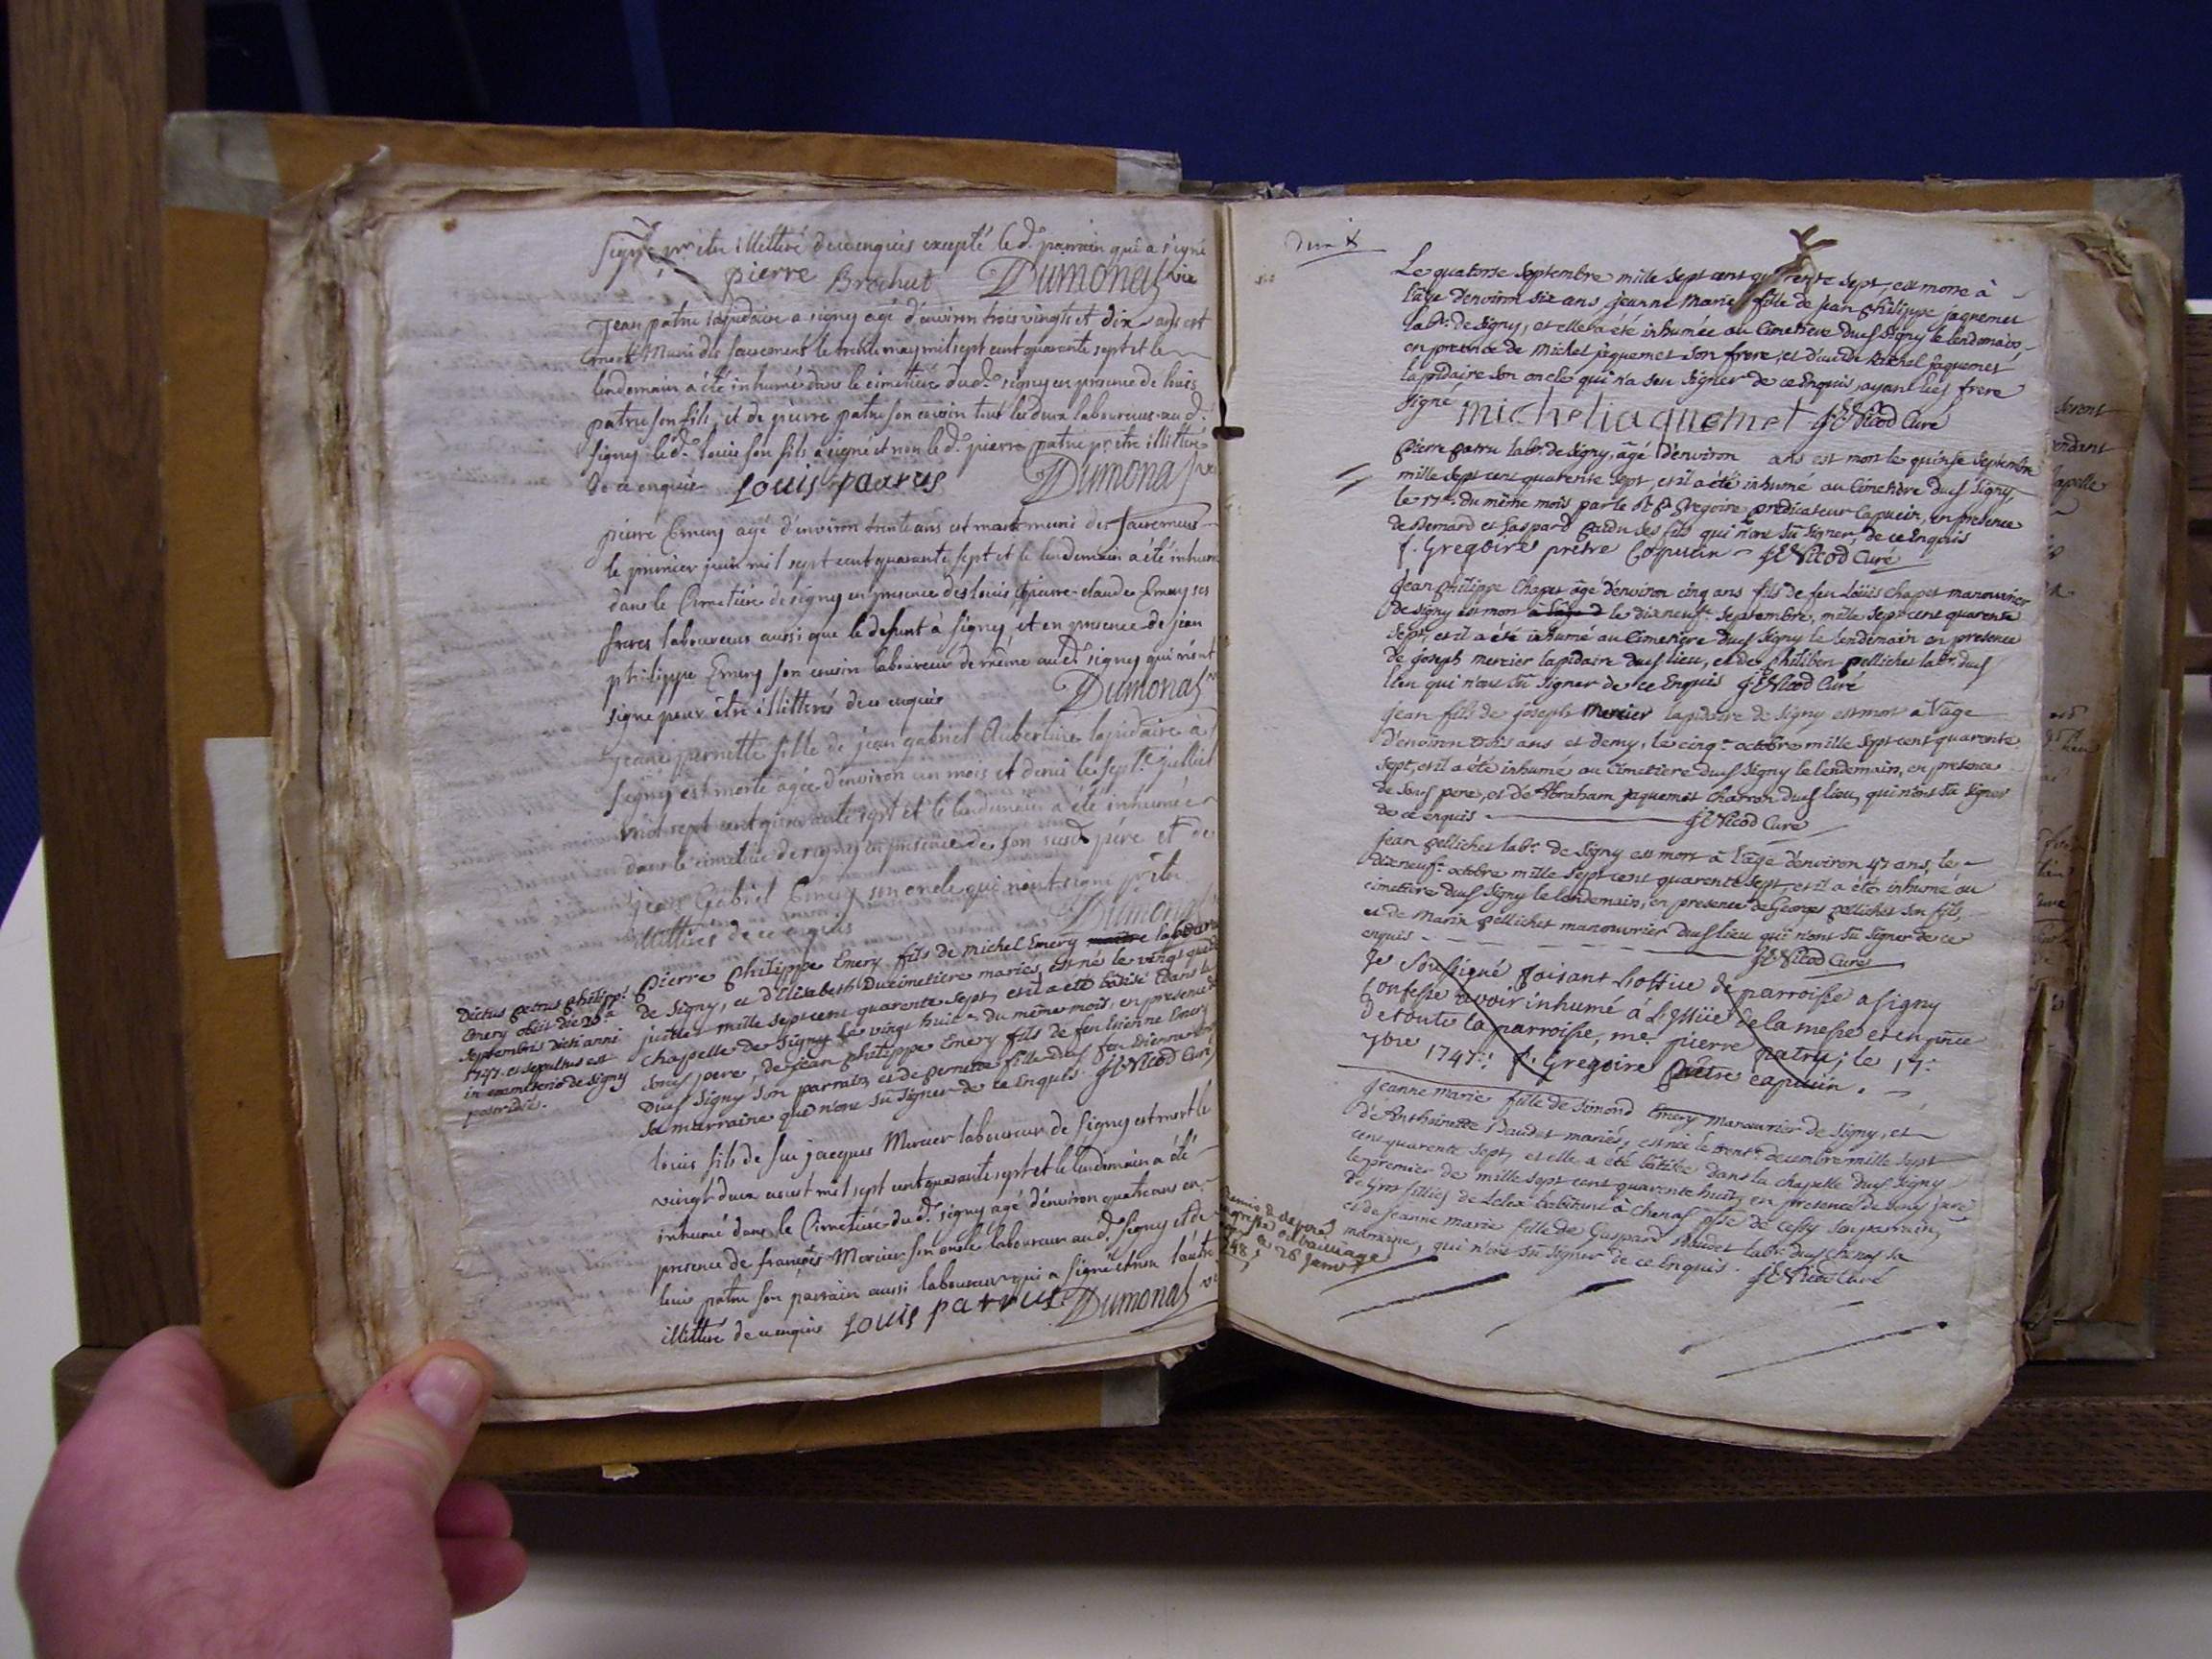 signé pr etre illitteré de ce enquis excepté le d. parrain qui a signé
pierre Brochut Dumonal vic
Jean patru lapidaire a signy agé d'environ trois vingts et dix ans est
mort Muni des sacrements le trente may mil sept cent quarante sept et le
lendemain a été inhumé dans le cimetiere dud. signy en presence de louis
patru son fils, et de pierre patru son cousin tout les deux laboureurs aud.
signy led. louis son fils a signé et non le d. pierre patru pr etre illitteré
de ce enquis Louis patrus Dumonal vic
pierre Emery agé d'environ trente ans est mort muni des sacremens
le premier juin mil sept cent quarante sept et le lendemain a été inhumé
dans le Cimetiere de signy en presence des louis et pierre-claude Emery ses
freres laboureurs aussi que le defunt à signy, et en presence de jean
philippe Emery son cousin laboureur de même aud. signy qui n'ont
signe pour être illitterés de ce enquis Dumonal v
jeane pernette fille de jean gabriel Aubertin lapidaire à
signy est morte agée d'environ un mois et demi le sept juilliet
mil sept cent quarante sept et le lendemain a été inhumée
dans le cimetiere de signy en presence de son susd. pére et de
jean Gabriel Emery son oncle qui n'ont signé pr etre
illitterés de ce enquis Dumonal
Pierre Philippe Emery fils de Michel Emery laboureur
de Signy, et d'Elisabeth Ducimetiere mariés, est né le vingt
juillet mille sept cent quarente sept, et il a eté batisé dans la
chappelle de Signy le vingt huit du même mois, en presence de
sond. pere, de jean philippe Emery fils de feu Etienne Emery
dud. Signy son parrain, et de pernette fille dud. feu Etienne
sa marraine qui n'ont sû signer de ce Enquis. J.E. Nicod Curé
Dictus petrus philipp.
Emery obiit die 28a
septembris dicti anni
1747. et sepultus est
in cæmiterio de Signy
postridiè.
louis fils de feu jacques Mercier laboureur de Signy est mort le
vingt deux aoust mil sept cent quarante sept et le lendemain a été
inhumé dans le Cimetiere du d. signy agé d'environ quatre ans en
presence de françois Mercier son oncle laboureur au d. signy et de
louis patru son parrain aussi laboureur qui a signé et non l'autre
illitteré de ce enquis Louis patrus Dumonal vi
Le quatorse septembre mille sept cent quarente sept, est morte à
l'age d'environ six ans, jeanne Marie fille de Jean Philippe jaquemet
labr. de Signy, et elle a été inhumée au Cimetiere dud. Signy le lendemain,
en presence de Michel jaquemet son frere, et d'autre Michel jaquemet
lapidaire son oncle qui n'a seu signer de ce Enquis, ayant led. frere
signé Micheliaquemet J.E. Nicod Curé
Pierre Patru labr. de Signy, âgé d'environ ans est mort le quinse septembre
mille sept cent quarente sept, et il a été inhumé au Cimetiere dud. Signy,
le 17e. du même mois par le R. P. Gregoire prédicateur Capucin, en presence
de Bernard et Gaspard ses fils qui n'ont sû signer, de ce Enquis
f. Gregoire prêtre Capucin J.E. Nicod Curé
Jean Philippe Chapet âgé d'environ cinq ans fils de feu Loüis Chapet manouvrier
de Signy est mort à l'age d le dixneufe. septembre, mille sept cent quarente
sept, et il a été inhumé au Cimetiere dud. Signy le lendemain en presence
de joseph mercier lapidaire dud. lieu, et de philibert pellichet labr. dud.
lieu qui n'ont sû signer de ce Enquis J.E. Nicod Curé
Jean fils de joseph Mercier lapidaire de Signy est mort a l'age
d'environ trois ans et demy, le cinqe. octobre mille sept cent quarente
sept, et il a été inhumé au Cimetiere dud. Signy le lendemain, en presence
de sond. pere, et de Abraham jaquemet Charron dud. lieu, qui n'ont sû signer
de ce enquis J.E. Nicod Curé
Jean pellichet labr. de Signy est mort à l'âge d'environ 47 ans, le
dixneufe. octobre mille sept cent quarente sept, et il a été inhumé au
cimetiere dud. Signy le lendemain, en presence de Georges pellichet son fils,
et de Marin pellichet manouvrier dud. lieu qui n'ont sû signer de ce
enquis J.E. Nicod Curé
Je soussigné faisant l'office de parroisse a signy
confesse avoir inhumé à l'issüe de la messe et en pnce
de toute la parroisse, me pierre patru; le 17:
7bre 1747: f. Gregoire Prêtre capucin.
Jeanne Marie fille de Simond Emery Manouvrier de Signy, et
d'Anthoinette Baudet mariés, est née le trente decembre mille sept
cent quarente sept, et elle a eté bâtisée dans la chapelle dud. Signy
le premier de mille sept cent quarente huit, en presence de sond. pere
de Lelex habitant à Chenaz psse de Cessy son parrain,
et de Jeanne Marie fille de Gaspard Baudet labr. dud. Chenaz sa
marraine, qui n'ont sû signer de ce Enquis. J.E. Nicod Curé
greffe du bailliage
a 26 janv.
748